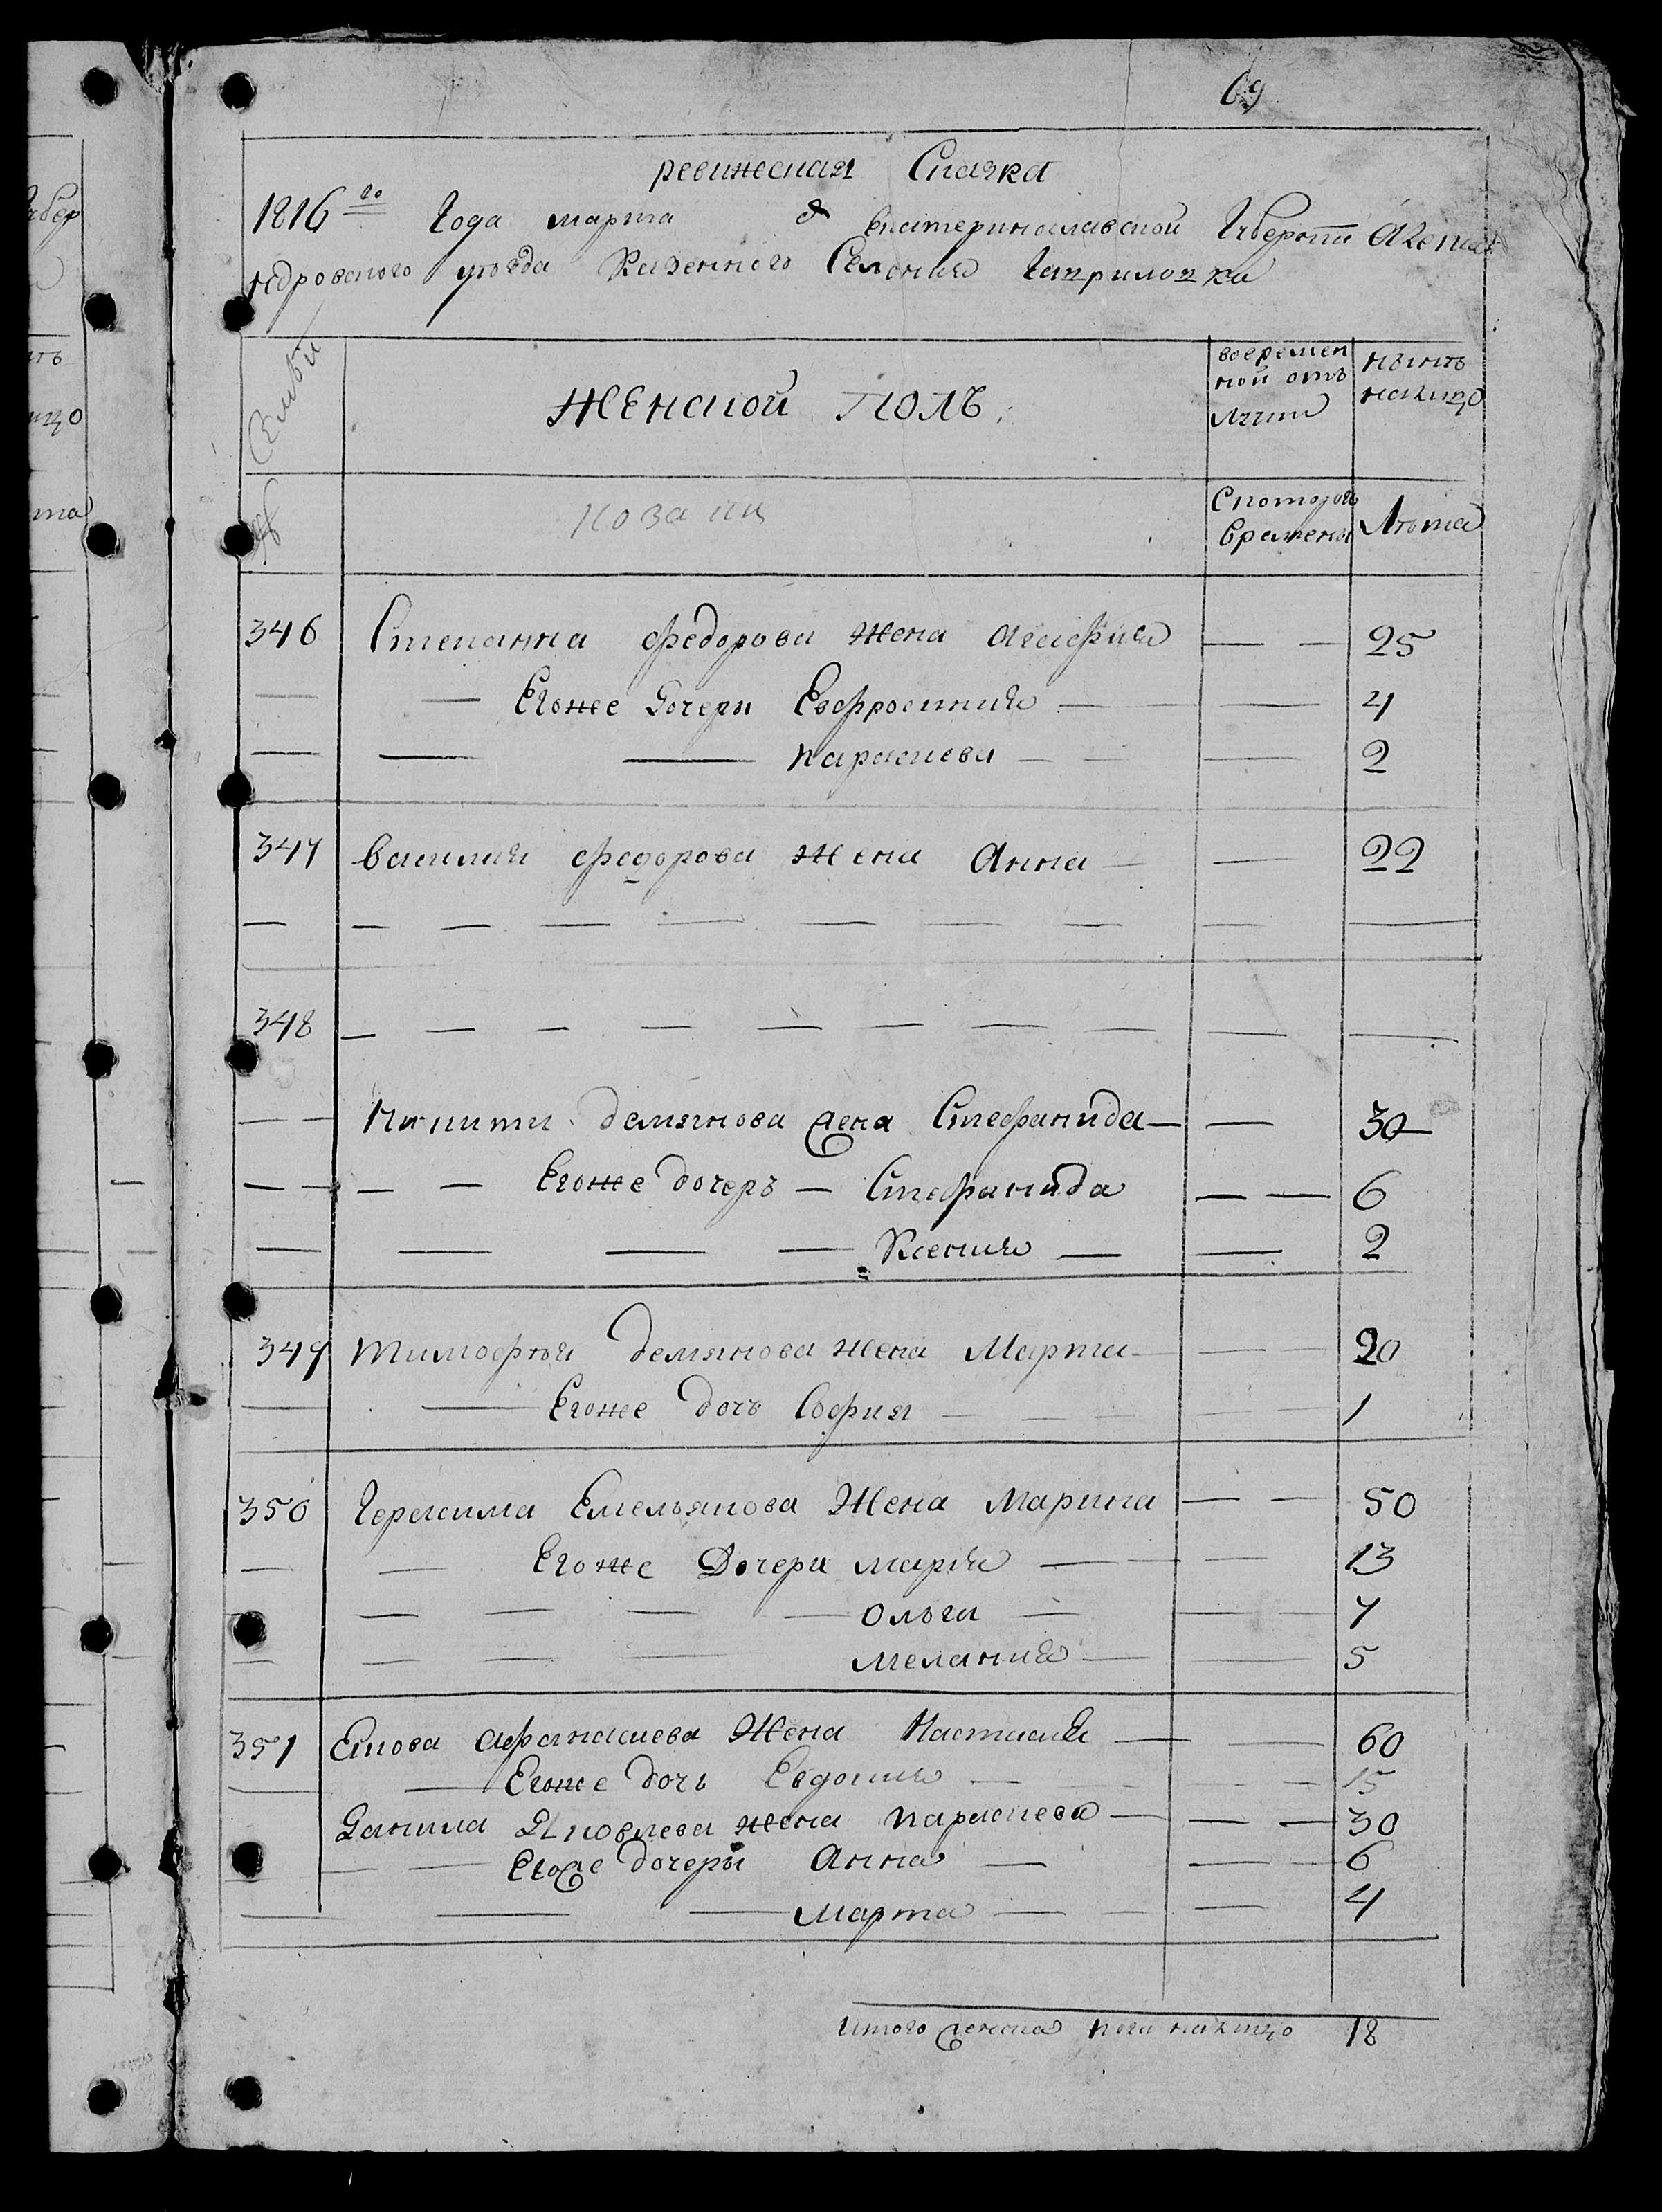 69
ревижская Сказка
1816го Года марта д Екатеринославской Губерніи Алекса
ндровского уезда Казенного Селения Гавриловка
Семьи
Женской полъ
вовремен
ной отъ
лучки
нынѣ
налицо
№
Казаки
Скоторого
времени
Лѣта
346 Степанна федорова жена агафия — — 25
— — Егоже Дочери Евфросиния — — 4
— — — параскева — — 2
347 василия федорова жена Анна — — 22
348 — — — — — — — — — —
— — Никити демянова жена Стефанида — — 30
— — — — Егоже дочеръ — Стефанида — — 6
— — — — Ксения — — 2
349 тимофѣя демянова жена Марта — — 20
— — Егоже дочь София — — 1
350 Герасима Емельянова Жена Марина — — 50
— — Егоже Дочери мария — — 13
— — — — ольга — — 7
— — — — мелания — — 5
351 Якова афанасиева Жена Настасия — — 60
— — Егоже дочь Евдокия — — 15
Данила Яковлева жена параскева — — 30
— — Егоже дочери Анна — — 6
— — — марта — — 4
Итого женска пола налицо 18